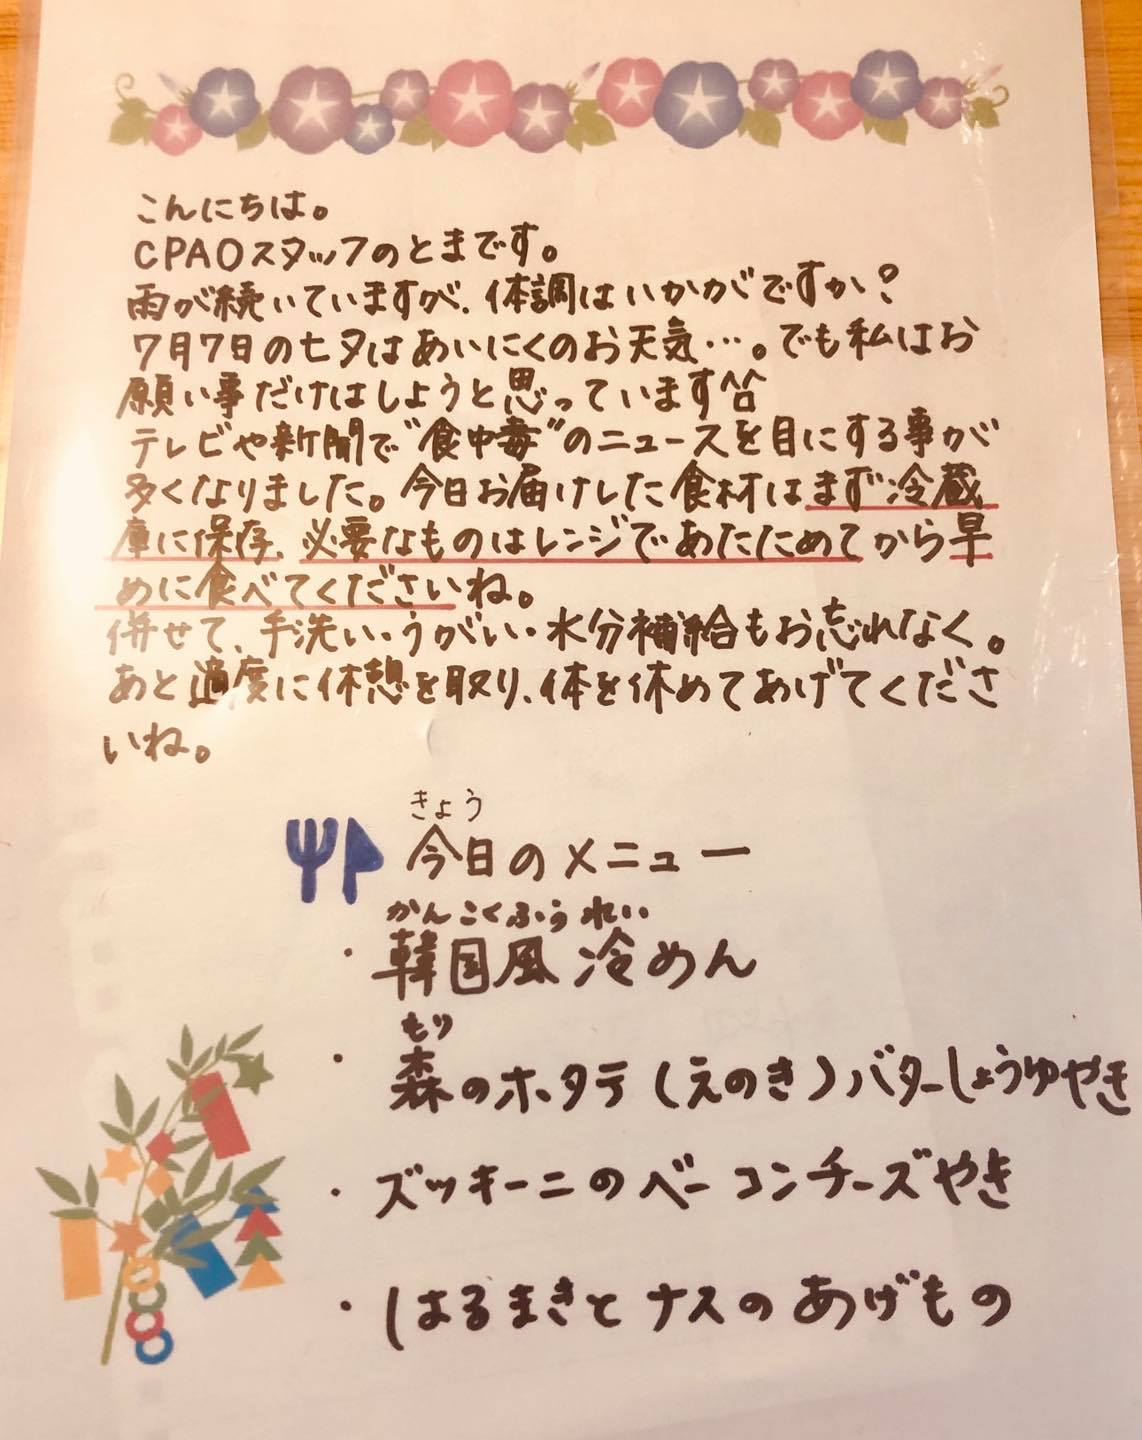 こんにちは。
CPAOスタッフのとまです。
雨が続いていますが、体調はいかがですか?
7月7日の七夕はあいにくのお天気…。でも私はお
願い事だけはしようと思っています^^
テレビや新聞で“食中毒”のニュースを目にする事が
多くなりました。今日お届けした食材はまず冷蔵
庫に保存、必要なものはレンジであたためてから早
めに食べてくださいね。
併せて、手洗い・うがい・水分補給もお忘れなく。
あと適度に休憩を取り、体を休めてあげてくださ
いね。
きょう
今日のメニュー
かんこくふうれい
・韓国風冷めん
もり
・森のホタテ(えのき)バターしょうゆやき
・ズッキーニのベーコンチーズやき
・はるまきとナスのあげもの